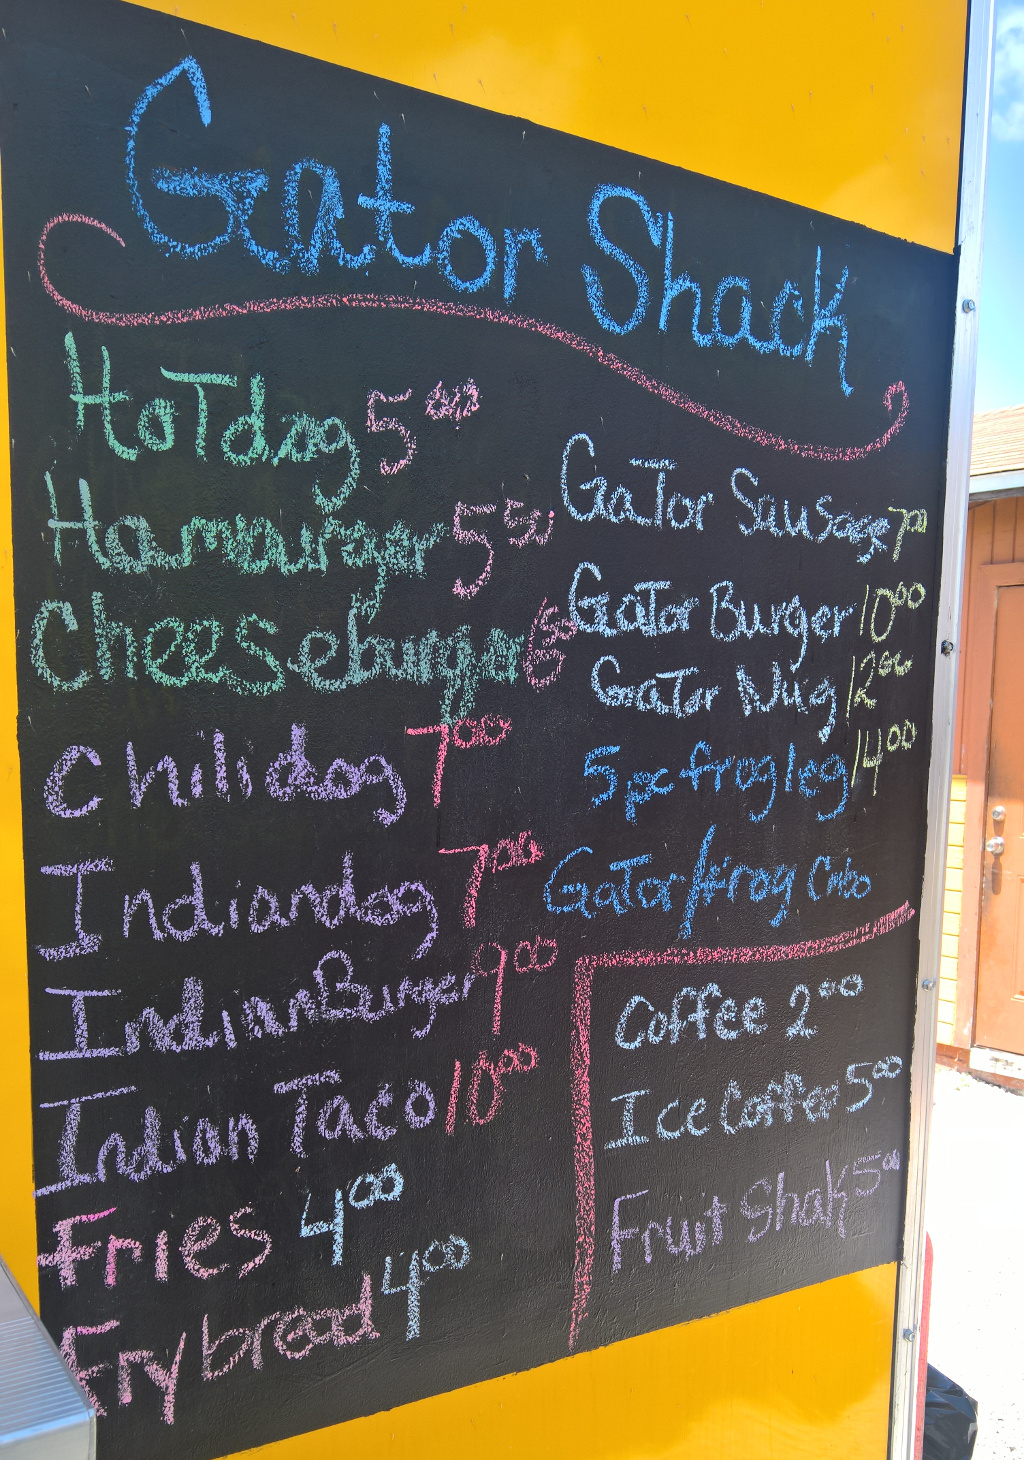 Gator Shack
HoTdog 5.00
Hamburger 5.50
Cheeseburger 6.00
Chilidog 7.00
Indiandog 7.00
IndianBurger 9.00
Indian Taco 10.00
Fries 4.00
Frybread 4.00
GaTor Sausage 7.00
GaTor Burger 10.00
GaTor Nug 12.00
5pc frogleg 14.00
GaTor/frog Cmbo
Coffee 2.00
Ice Coffee 5.00
Fruit Shak 5.00